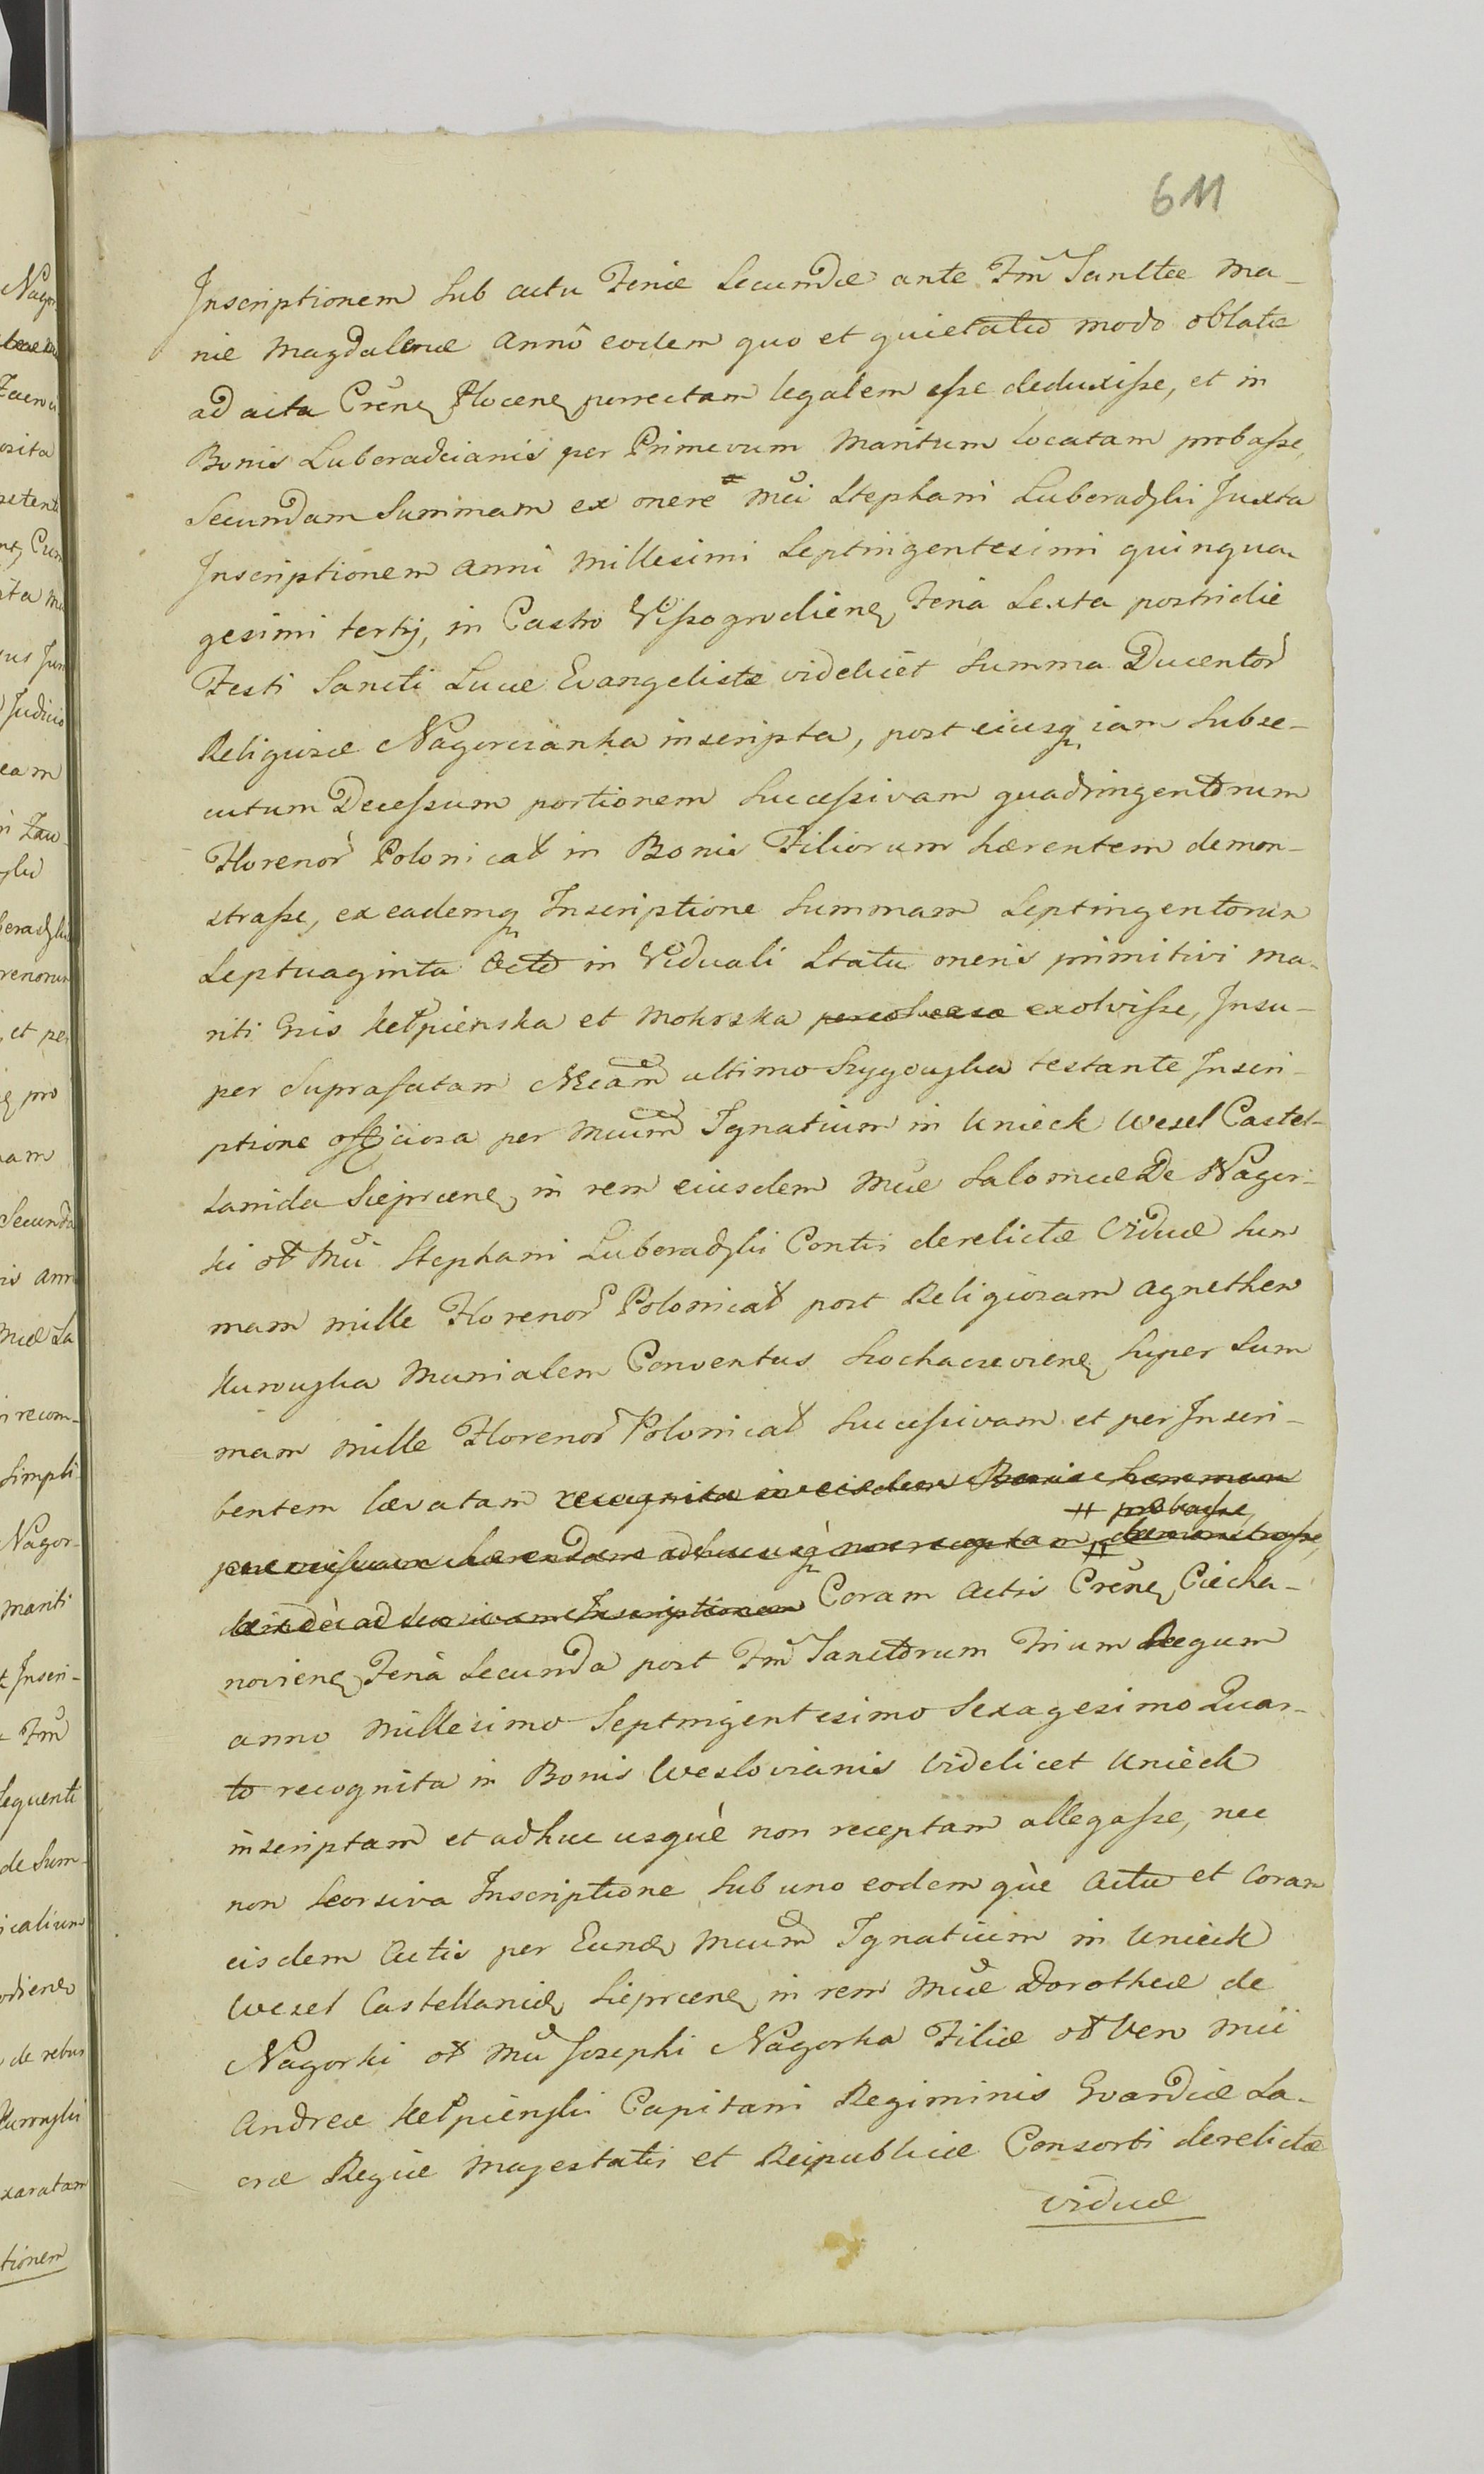 611
Inscriptionem Sub actu Feriæ Secundæ ante Fm̃ Sanctæ Ma-
riæ Magdalenæ annô eodem quo et quietatio modo oblatæ
ad acta Crẽneɋ Plocensɋ porrectam legalem eſse deduxiſse, et in
Bonis Luboradcianis per Primevum Maritum locatam probaſse,
Secundam Summam ex onere Mci Stephani Luboradzki Juxta
Inscriptionem anni Millesimi Septingentesimi quinqua-
gesimi tertij, in Castro Wiſsogrodiensɋ Feria Sexta postridie
Festi Sancti Lucæ Evangelistæ videlicet Summa Ducentor̃
Religiosæ Nagorcianka inscripta, post eiusqɜ iam Subse-
cutum Deceſsum portionem Succeſsivam quadringentorum
Florenor̃ Polonicał in Bonis Filiorum hærentem demon-
straſse, ex eademqɜ Inscriptione Summam Septingentorum
Septuaginta Octo in Viduali Statu oneris primitivi Ma-
riti Gsis Kełpienska et Mokrska exolviſse, Insu-
per Suprafatam Mcam ultimo Szygowska testante Inscri-
ptione officiosa per Mcum Ignatium in Unieck Wesel Castel-
lanida Sieprcensɋ in rem eiusdem Mcæ Salomeæ De Nagor-
ki oł Mci Stephani Luboradzki Contis derelictæ Viduæ Sum
mam mille Florenor̃ Polonicał post Religiosam Agnethem
Kurowska Monialem Conventus Sochaczeviensɋ Super Sum
mam mille Florenor̃ Polonicał Succeſsivam et per Inscri-
bentem levatam recognita in eisdem Bonis Summam
# probaſse,
hærendam adhucusqɜ non receptam # demonstraſse,
deinde ad Seorsivam Inscriptionem Coram Actis Crẽneɋ Ciecha-
noviensɋ Feria Secunda post Fm̃ Sanctorum Trium Regum
anno Millesimo Septingentesimo Sexagesimo Quar-
to recognita in Bonis Weslovianis Videlicet Unieck
inscriptam et adhuc usquè non receptam allegaſse, nec
non Seorsiva Inscriptione Sub uno eodem què Actu et Coram
eisdem Actis per Eund Mcum Ignatium in Unieck
Wesel Castellanid Sieprcensɋ in rem Mcæ Dorotheæ de
Nagorki oł Mci Josephi Nagorka Filiæ oł Vero Mci
Andreæ Kełpienski Capitani Regiminis Gvardiæ Sa-
cræ Regiæ Majestatis et Reipublicæ Consorti derelictæ
viduæ